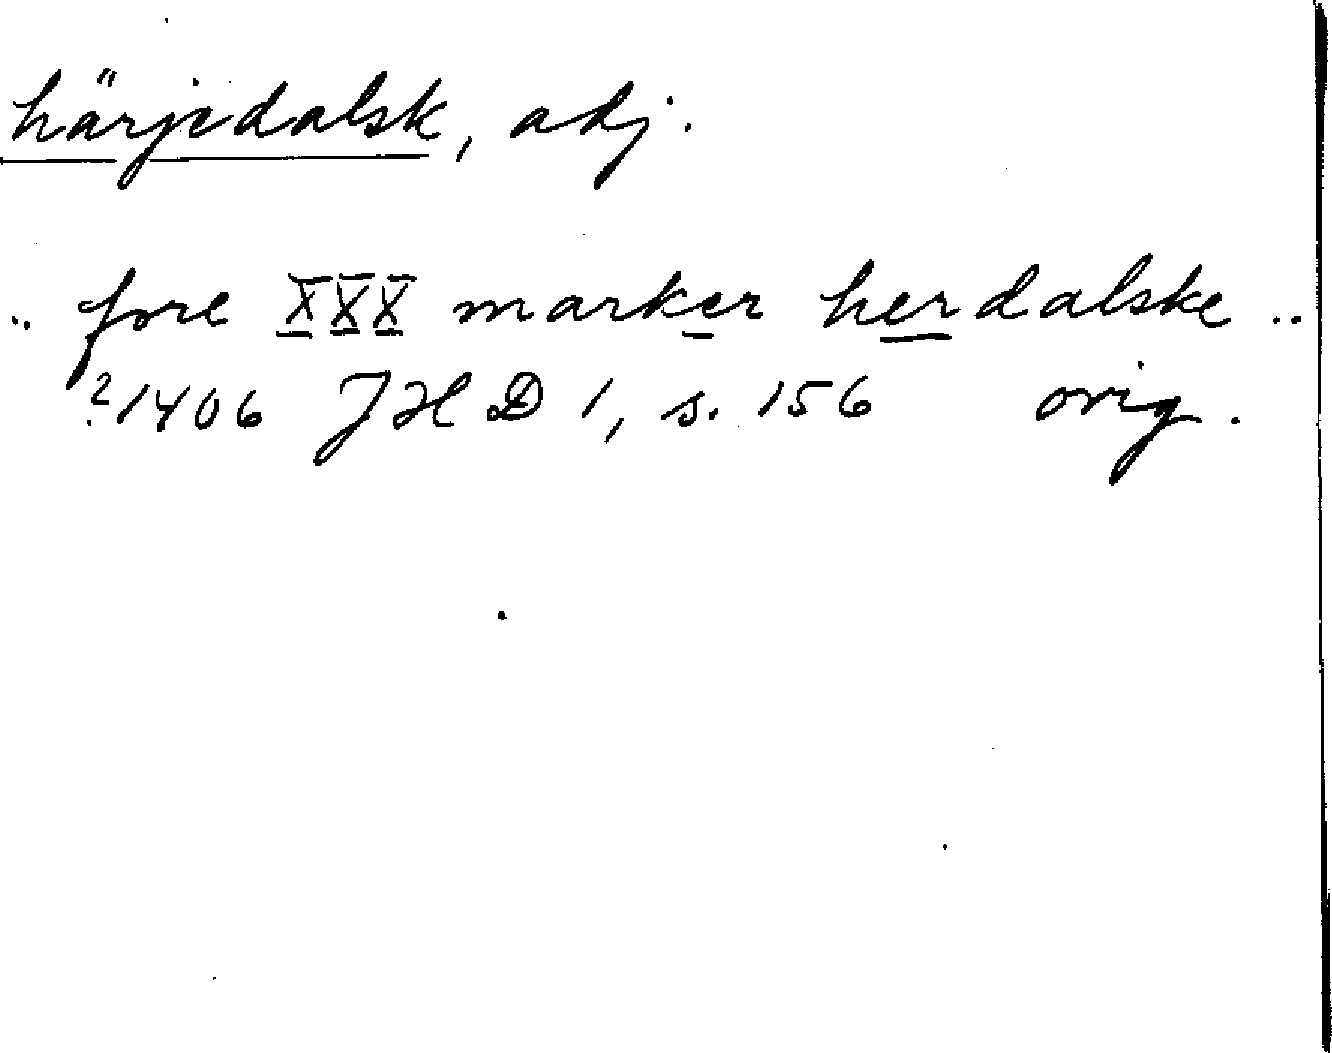 härjedalsk, adj.
.. fore XXX marker herdalske ..
?1406 JHD 1, s. 156 orig.